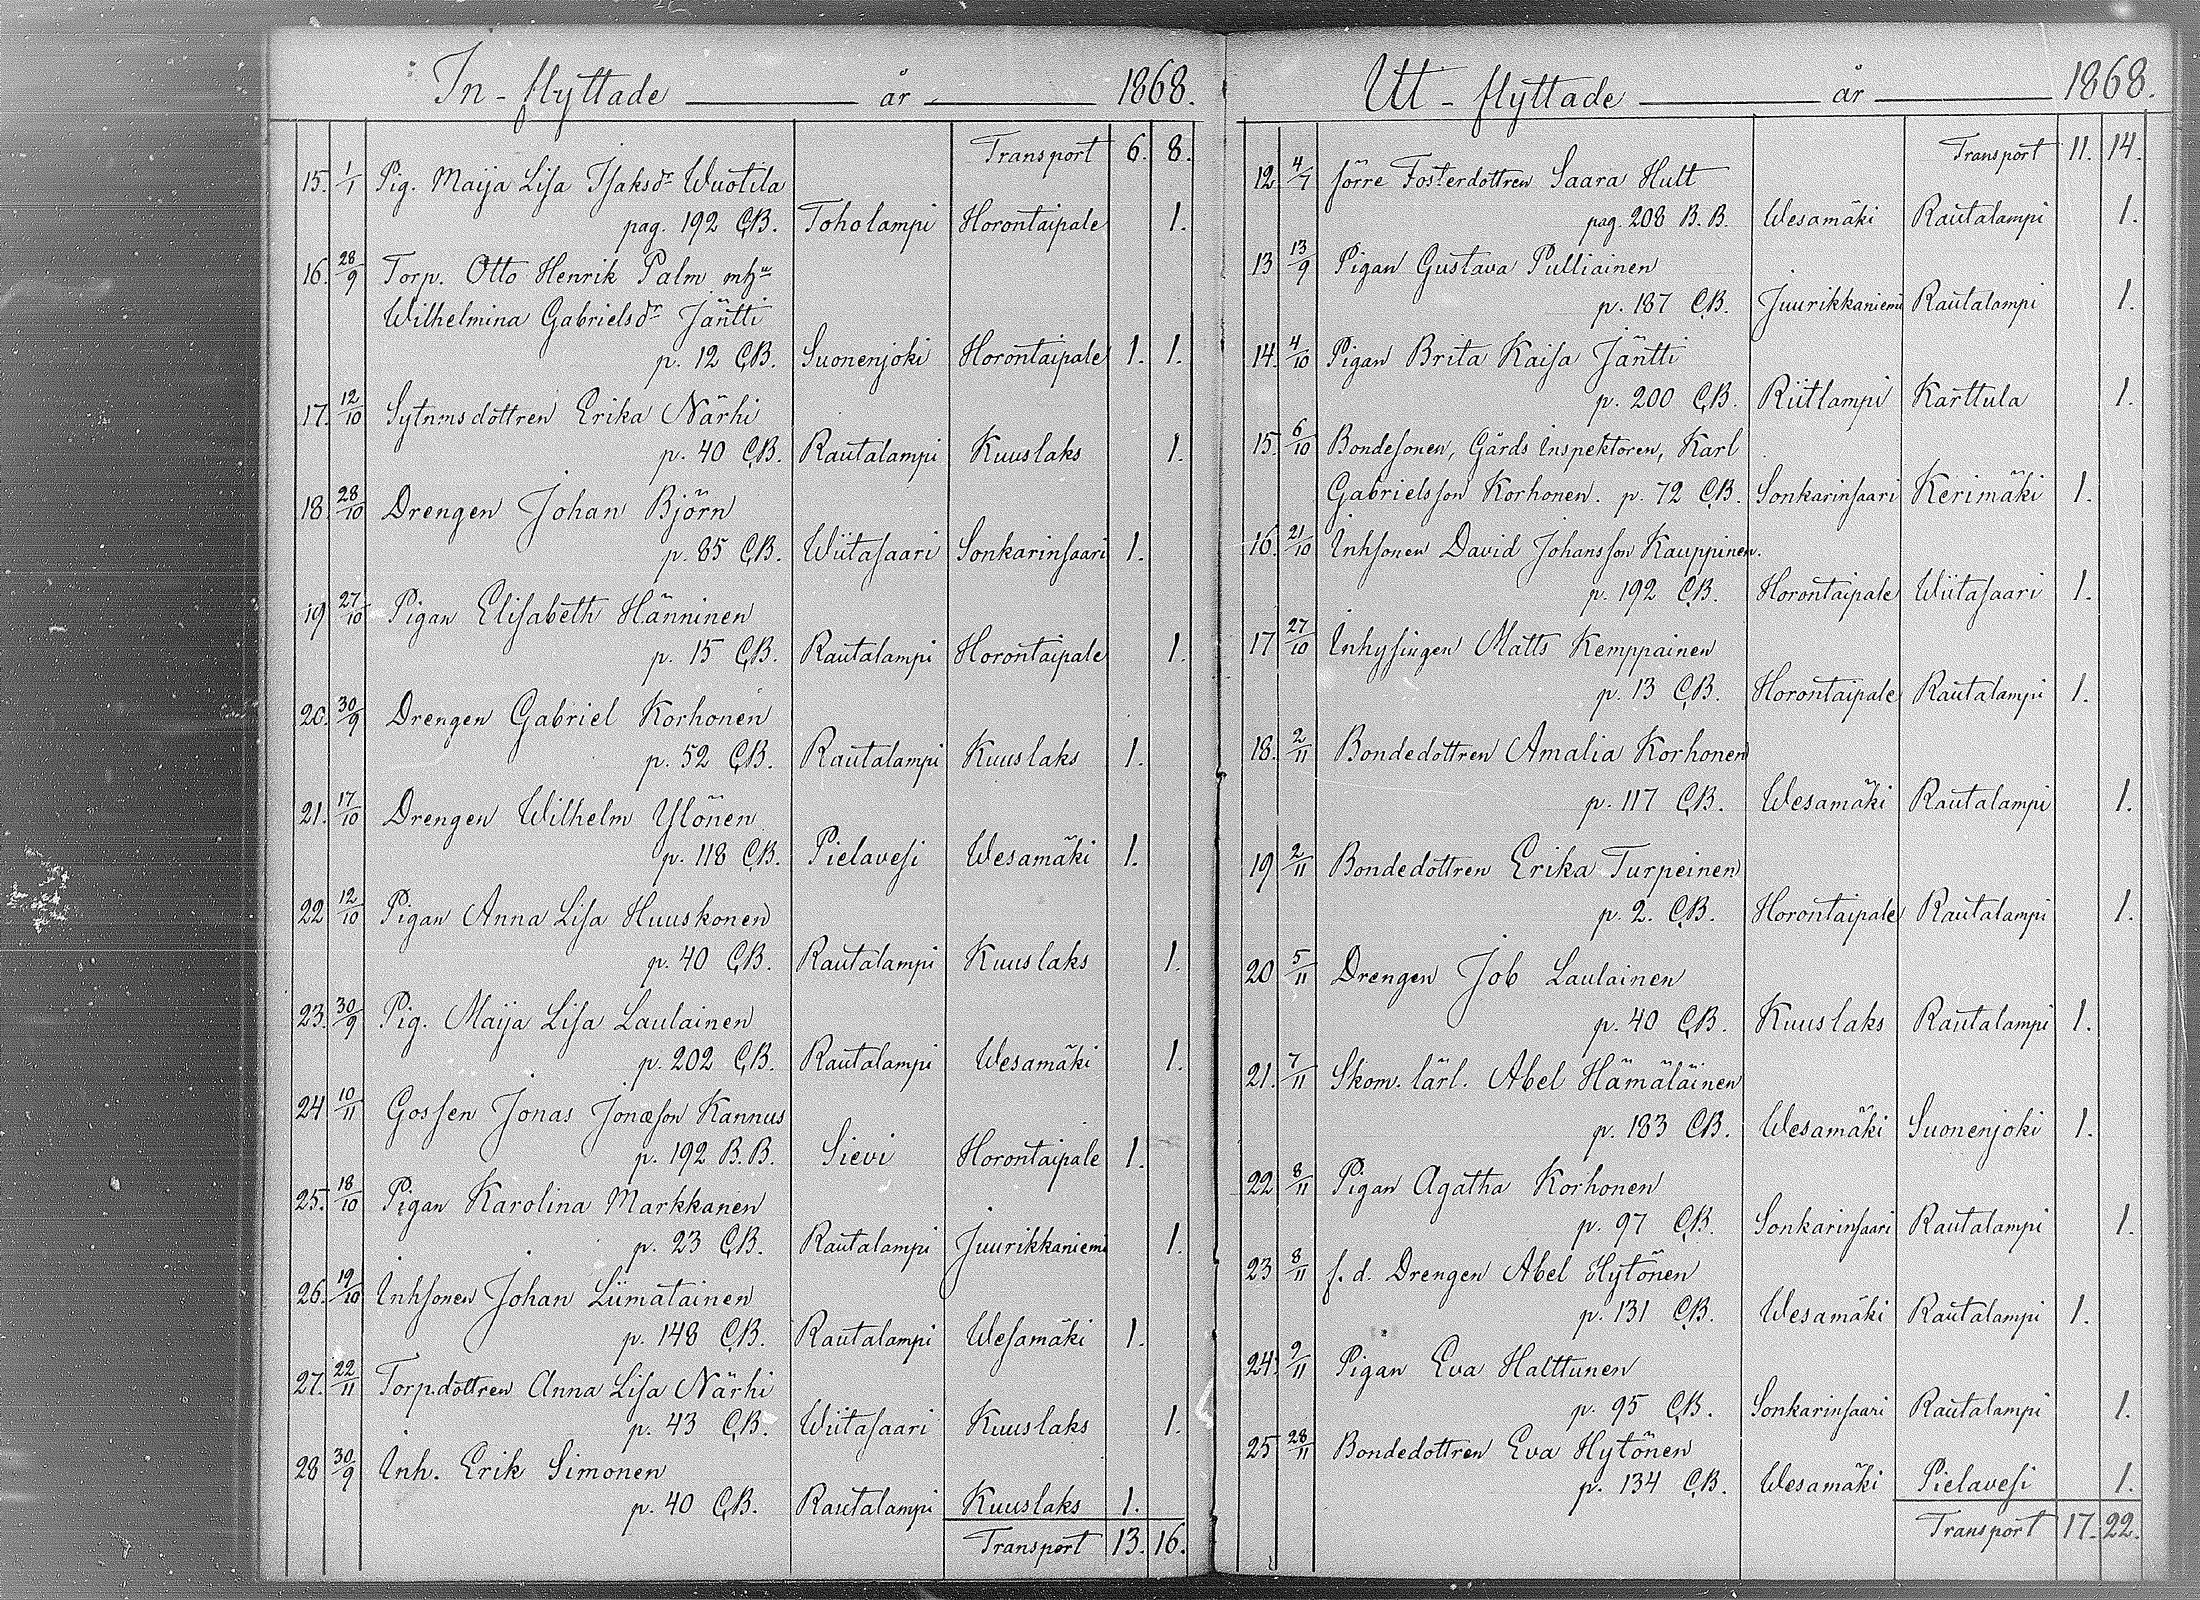 In-flyttade år 1868.
Transport 6. 8.
15. 1/1 Pig. Maija Lisa Isaksdr Wuotila
pag. 192 C.B. Toholampi Horontaipale 1.
16. 28/9 Torp. Otto Henrik Palm mh
Wilhelmina Gabrielsdr Jäntti
p. 12 C.B. Suonenjoki Horontaipale 1. 1.
17. 12/10 Sytnmsdottren Erika Närhi
p. 40 C.B. Rautalampi Kuuslaks 1.
18. 28/10 Drengen Johan Björn
p. 85 C.B. Wiitasaari Sonkarinsaari 1.
19 27/10 Pigan Elisabeth Hänninen
p. 15 C.B. Rautalampi Horontaipale 1.
20. 30/9 Drengen Gabriel Korhonen
p. 52 C.B. Rautalampi Kuuslaks 1.
21. 17/10 Drengen Wilhelm Ylönen
p. 118 C.B. Pielavesi Wesamäki 1.
22 12/10 Pigan Anna Lisa Huuskonen
p. 40 C.B. Rautalampi Kuuslaks 1.
23. 30/9 Pig. Maija Lisa Laulainen
p. 202 C.B. Rautalampi Wesamäki 1.
24 10/11 Gossen Jonas Jonæson Kannus
p. 192 B.B. Sievi Horontaipale 1.
25. 18/10 Pigan Karolina Markkanen
p. 23 C.B. Rautalampi Juurikkaniemi 1.
26. 19/10 Inhsonen Johan Liimatainen
p. 148 C.B. Rautalampi Wesamäki 1.
27. 22/11 Torp.dottren Anna Lisa Närhi
p. 43 C.B. Wiitasaari Kuuslaks 1.
28 30/9 Inh. Erik Simonen
p. 40 C.B. Rautalampi Kuuslaks 1.
Transport 13. 16.
Utt-flyttade år 1868.
Transport 11. 14.
12 4/7 förre Fosterdottren Saara Hult
pag. 208 B.B. Wesamäki Rautalampi 1.
13 13/9 Pigan Gustava Pulliainen
p. 187 C.B. Juurikkaniemi Rautalampi 1.
14. 4/10 Pigan Brita Kaisa Jäntti
p. 200 C.B. Riitlampi Karttula 1.
15. 6/10 Bondesonen, Gårds Inspektoren, Karl
Gabrielsson Korhonen. p. 72 C.B. Sonkarinsaari Kerimäki 1.
16. 21/10 Inhsonen David Johansson Kauppinen.
p. 192 C.B. Horontaipale Wiitasaari 1.
17 27/10 Inhysingen Matts Kemppainen
p. 13 C.B. Horontaipale Rautalampi 1.
18. 2/11 Bondedottren Amalia Korhonen
p. 117 C.B. Wesamäki Rautalampi 1.
19 2/11 Bondedottren Erika Turpeinen
p. 2. C.B. Horontaipale Rautalampi 1.
20 5/11 Drengen Job Laulainen
p. 40 C.B. Kuuslaks Rautalampi 1.
21. 7/11 Skom. lärl. Abel Hämäläinen
p. 183 C.B. Wesamäki Suonenjoki 1.
22 8/11 Pigan Agatha Korhonen
p. 97 C.B. Sonkarinsaari Rautalampi 1.
23 8/11 f.d. Drengen Abel Hytönen
p. 131 C.B. Wesamäki Rautalampi 1.
24. 9/11 Pigan Eva Halttunen
p. 95 C.B. Sonkarinsaari Rautalampi 1.
25 28/11 Bondedottren Eva Hytönen
p. 134 C.B. Wesamäki Pielavesi 1.
Transport 17. 22.